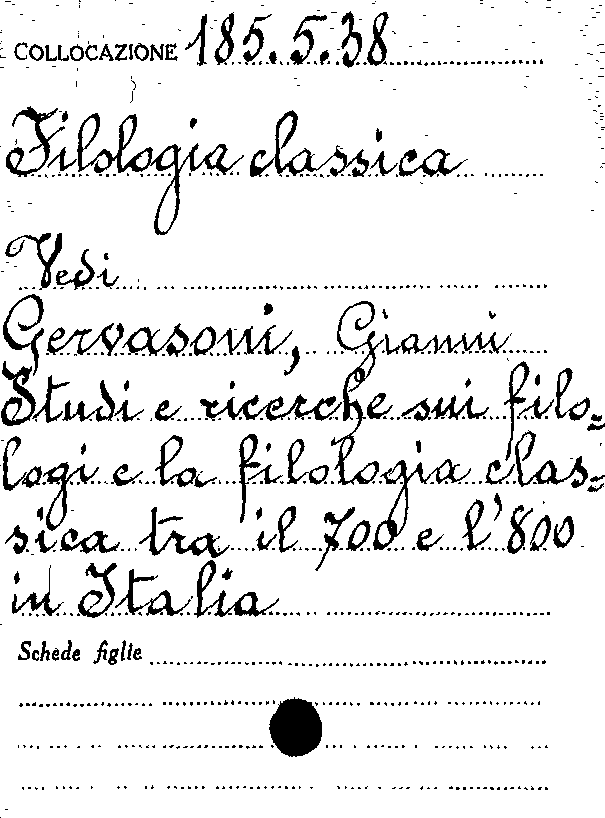 COLLOCAZIONE 185.5.38
Filologia classica
Vedi
Gervasoni, Gianni
Studi e ricerche sui filo=
logi e la filologia clas=
sica tra il 700 e l'800
in Italia
Schede figlie